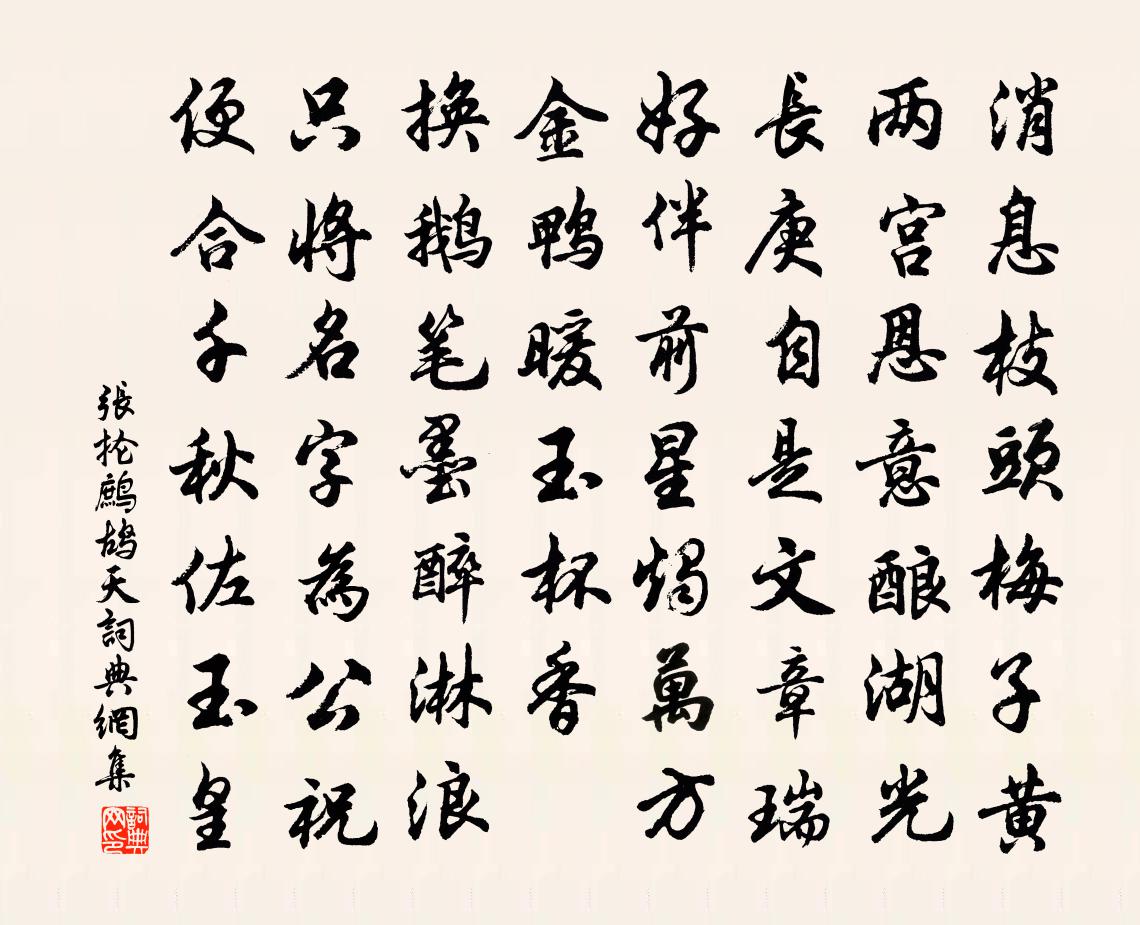 消息枝頭梅子黄
两宫恩意酿湖光
長庚自是文章瑞
好伴前星燭萬方
金鸭暖玉杯香
换鹅笔墨醉淋浪
只將名字為公祝
便合千秋佐玉皇
張抡鷓鴣天詞典網集
詞典网印